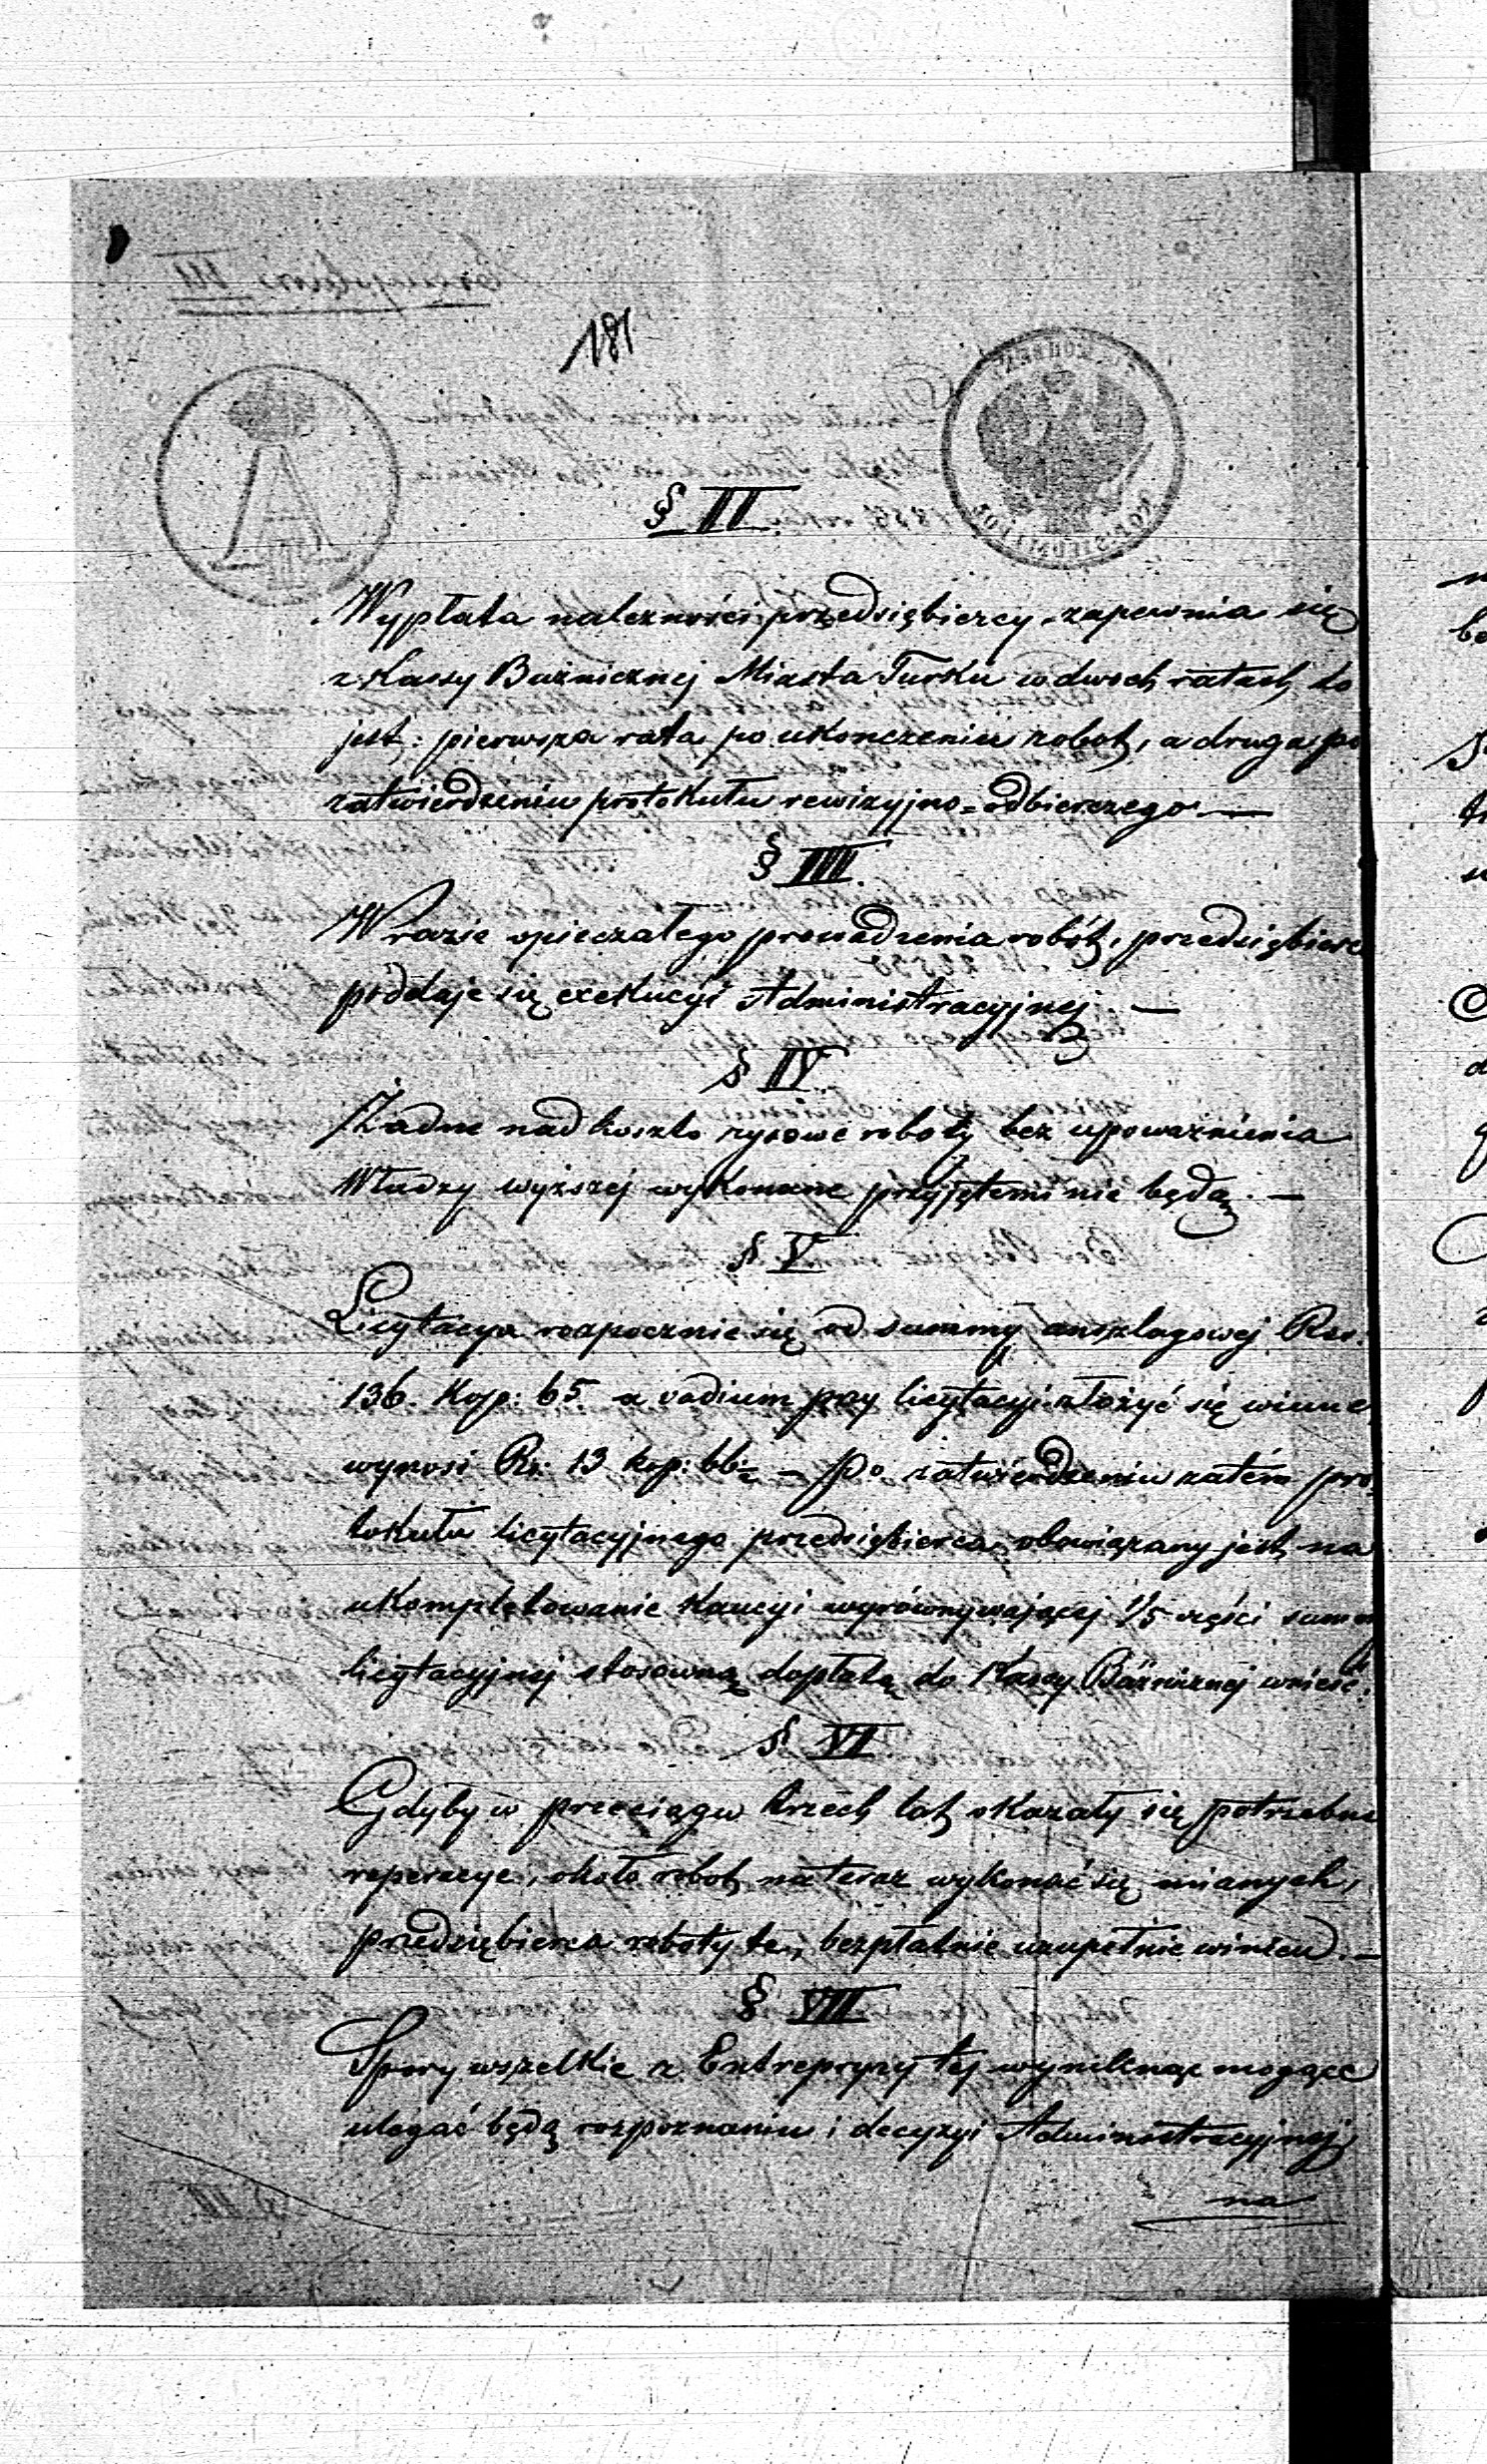 181
§ II
Wypłata należności przedsiębiercy, zapewnia się
z Kassy Bużnicznej Miasta Turku w dwóch ratach to
jest: pierwsza rata po ukonczeniu robot, a druga po
zatwierdzeniu protokułu rewizyjno=odbierczego —
§ IIII.
W razie opieczałego prowadzenia robót, przedsiębierc
poddaje się exekucyi Administracyjnej —
§ IV.
Żadne nad koszto rysowe roboty bez upoważnienia
Władzy wyższej wykonane przyjętemi nie będą. —
§ V
Licytacya rozpocznie się od summy anszlagowej Rsr.
136. Kop: 65. a vadium przy licytacyi złożyć się winne
wynosi Rs: 13 kop: 66½ — po zatwierdzeniu zatém pro
tokułu licytacyjnego przedsiębierca obowiązany jest na
ukompletowanie kaucyi wyrównywającej 1/5 części summy
licytacyjnej stosowną dopłatę do Kassy Bużnicznej wnieść.
§ VI
Gdyby w przeciągu trzech lat okazały się potrzebne
reperacye, około robot na teraz wykonać się mianych,
przedsiębierca roboty te, bezpłatnie uzupełnić winien. —
§ VII
Spory wszelkie z Entrepryzy tej wyniknąć mogące
ulegać będą rozpoznaniu i decyzyi Administracyjnej
na